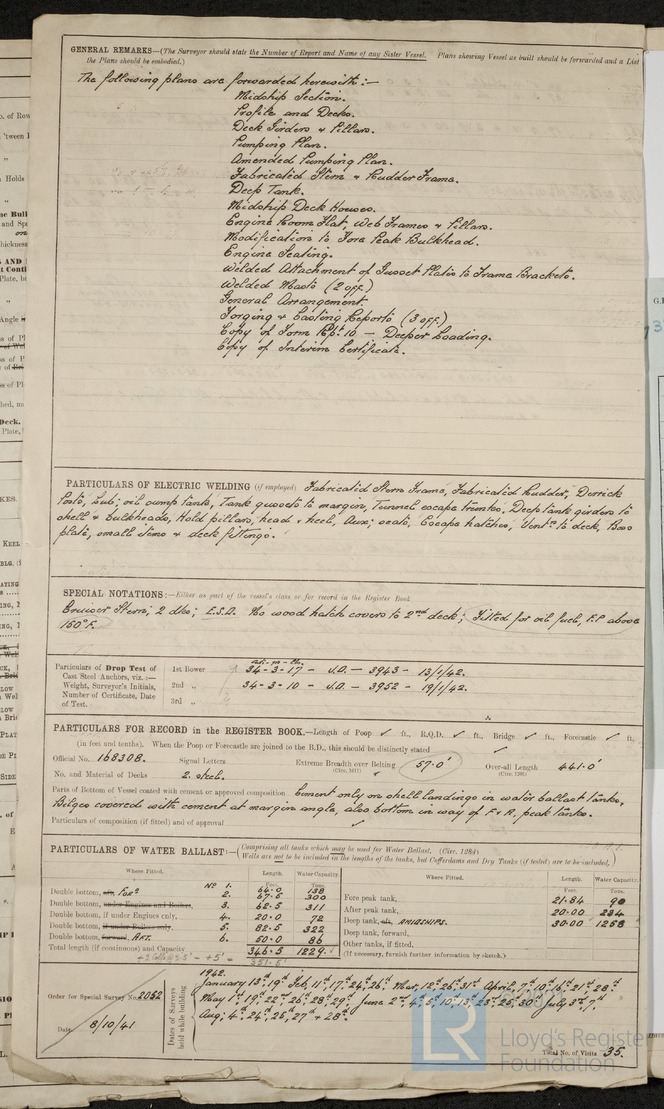 GENERAL REMARKS—(The Surveyor should state the Number of Report and Name of any Sister Vessel. Plans showing Vessel as built should be forwarded and a List
the Plans should be embodied.)
The following plans are forwarded herewith:-
Midship Section.
Profile and Decks.
Deck Girders & Pillars.
Pumping Plan.
Amended Pumping Plan.
Fabricated Stern & Rudder Frame.
Deep Tank.
Midship Deck Houses.
Engine Room Flat, Web Frames & Pillars.
Modification to Fore Peak Bulkhead.
Engine Seating.
Welded Attachment of Gusset Plates to Frame Brackets.
Welded Masts (2 off)
General Arrangement.
Forging & Casting Reports (3 off)
Copy of Form Rpt. 10 — Deeper Loading.
Copy of Interim Certificate.
PARTICULARS OF ELECTRIC WELDING (if employed) Fabricated Stern Frame, Fabricated Rudder, Derrick
Posts, Lub; oil sump tank, Tank gussets to margin, Tunnel escape trunks, Deep tank girders to
shell & bulkheads, Hold pillars, head & heel, Aux; seats, Escape hatches, Vents to deck, Boss
plate, small items & deck fittings.
SPECIAL NOTATIONS:—Either as part of the vessel's class or for record in the Register Book
Cruiser Stern; 2 dks; E.S.D. No wood hatch covers to 2nd deck; Fitted for oil fuel, F.P above
150°F.
Particulars of Drop Test of
Cast Steel Anchors, viz.:—
Weight, Surveyor's Initials,
Number of Certificate, Date
of Test.
1st Bower 34-3-17 - J.D. - 3943 - 13/1/42.
2nd „ 34-3-10 - J.D. - 3952 - 19/1/42.
3rd „
PARTICULARS FOR RECORD in the REGISTER BOOK.—Length of Poop ✓ ft., R.Q.D. ✓ ft., Bridge ✓ ft., Forecastle ✓ ft.,
(in feet and tenths). When the Poop or Forecastle are joined to the B.D., this should be distinctly stated ✓
Official No. 168308. Signal Letters Extreme Breadth over Belting 57.0' Over-all Length 441.0'
No. and Material of Decks 2. steel.
Parts of Bottom of Vessel coated with cement or approved composition Cement only on shell landings in water ballast tanks,
Bilges covered with cement at margin angle, also bottom in way of F & A, peak tanks.
Particulars of composition (if fitted) and of approval ✓
PARTICULARS OF WATER BALLAST:—(Comprising all tanks which may be used for Water Ballast. (Circ. 1284)
Wells are not to be included in the lengths of the tanks, but Cofferdams and Dry Tanks (if tested) are to be included.)
Where Fitted. Length. Water Capacity. Where Fitted. Length. Water Capacity.
Feet. Tons. Feet. Tons.
Double bottom, aft, FORD Nº 1. 64.0 138
Double bottom, 2. 67.6 300
Double bottom, under Engines and Boilers, 3. 62.5 311
Double bottom, if under Engines only, 4. 20.0 72
Double bottom, if under Boilers only, 5. 82.5 322
Double bottom, forward, AFT. 6. 50.0 86
Total length (if continuous) and Capacity 346.5 1229.
Fore peak tank, 21.84 90
After peak tank, 20.00 234
Deep tank, aft, AMIDSHIPS. 30.00 1258
Deep tank, forward,
Other tanks, if fitted,
(If necessary, furnish further information by sketch.)
Order for Special Survey No. 2052
Date 8/10/41
Dates of Surveys held while building
1942.
January 13th, 19th Feb, 11th, 17th, 24th, 26th Mar, 12th, 26th, 31st April, 7th, 10th, 16th, 21st, 28th
May 1st, 19th, 22nd, 26th, 28th, 29th June 2nd, 4th, 5th, 10th, 13th, 23rd, 25th, 30th July 3rd, 7th,
Aug; 4th, 24th, 25th, 27th & 28th
Total No. of Visits 35.
LR
Lloyd's Register
Foundation